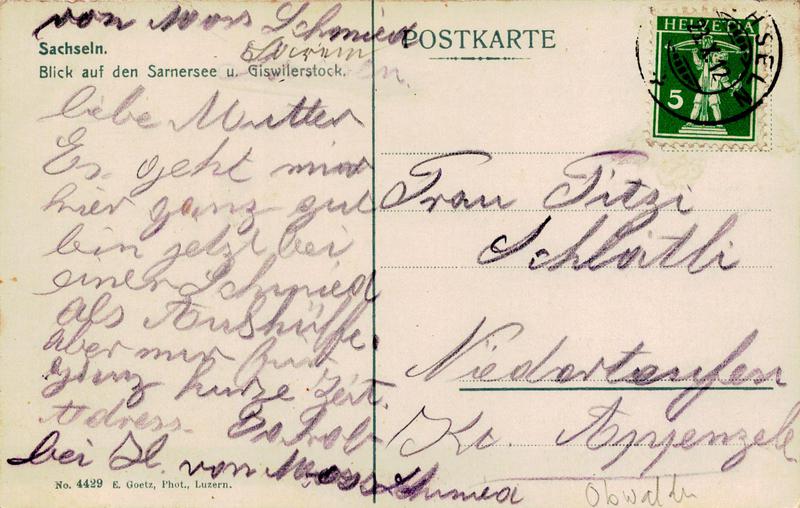 von Moos Schmied
Sachseln.
POSTKARTE
Blick auf den Sarnersee u. Giswilerstock.
HELVETIA
5
liebe Mutter
Es geht mir
hier ganz gut
bin jetzt bei
einer Schmied
als Aushülfe.
aber nur für
ganz kurze Zeit.
Adress.
bei H. von Moos Schmied
Frau Titzi
Schlätli
Niederteufen
Kt. Appenzell
Obwalden
No. 4429 E. Goetz, Phot., Luzern.